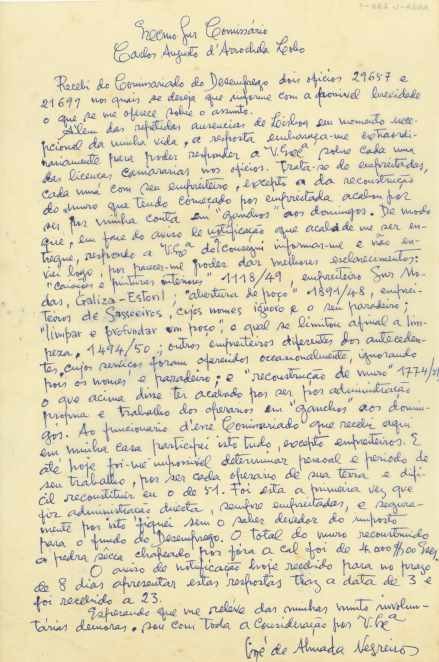 Exmo Snr Comissário
Carlos Augusto d'Arrochida Lobo
Recebi do Comissariado do Desemprego dois ofícios 29687 e
21699 nos quais se deseja que informe com a possível brevidade
o que se me oferece sobre o assunto.
Além das repetidas ausências de Lisboa em momento exce-
pcional da minha vida, a resposta embaraça-me extraordi-
nariamente para poder responder a V.Exª sobre cada uma
das licenças camarárias nos ofícios. Trata-se de empreitadas,
cada uma com seu empreiteiro, excepto a da reconstrução
do muro que tendo começado por empreitada acabou por
ser por minha conta em "ganchos" aos domingos. De modo
que, em face do aviso de notificação que acaba de me ser en-
tregue, respondo a V.Exª do q consegui informar-me e não en-
viei logo, por parecer-me poder dar melhores esclarecimentos:
"caiações e pinturas interiores" 1118/49, empreiteiro Snr Mo-
das, Galiza-Estoril; "abertura de poço" 1891/48, emprei-
teiros de Sassoeiros, cujos nomes ignoro e o seu paradeiro;
"limpar e profundar um poço", e qual se limitou afinal a lim-
peza, 1494/50; outros empreiteiros diferentes dos anteceden-
tes, cujos serviços foram oferecidos ocasionalmente, ignorando
pois os nomes e paradeiro; e "reconstrução de muro" 1774/51
o que acima disse ter acabado por ser por administração
própria e trabalho dos operários em "ganchos" aos domin-
gos. Ao funcionário d'esse Comissariado que recebi aqui
em minha casa participei isto tudo, excepto empreiteiros. E
até hoje foi-me impossível determinar pessoal e período de
seu trabalho, por ser cada operário de sua terra e difi-
cil reconstituir eu o de 51. Foi esta a primeira vez que
fiz administração directa, sempre empreitadas, e segura-
mente por isto fiquei sem o saber devedor do imposto
para o fundo do Desemprego. O total do muro reconstruido
a pedra sêca chapeado por fora a cal foi de 4.000$00
O aviso de notificação hoje recebido para no prazo
de 8 dias apresentar estas respostas traz a data de 3 e
foi recebido a 23.
Esperando que me releve das minhas muito involun-
tárias demoras, sou com toda a consideração por V.Exª
José de Almada Negreiros